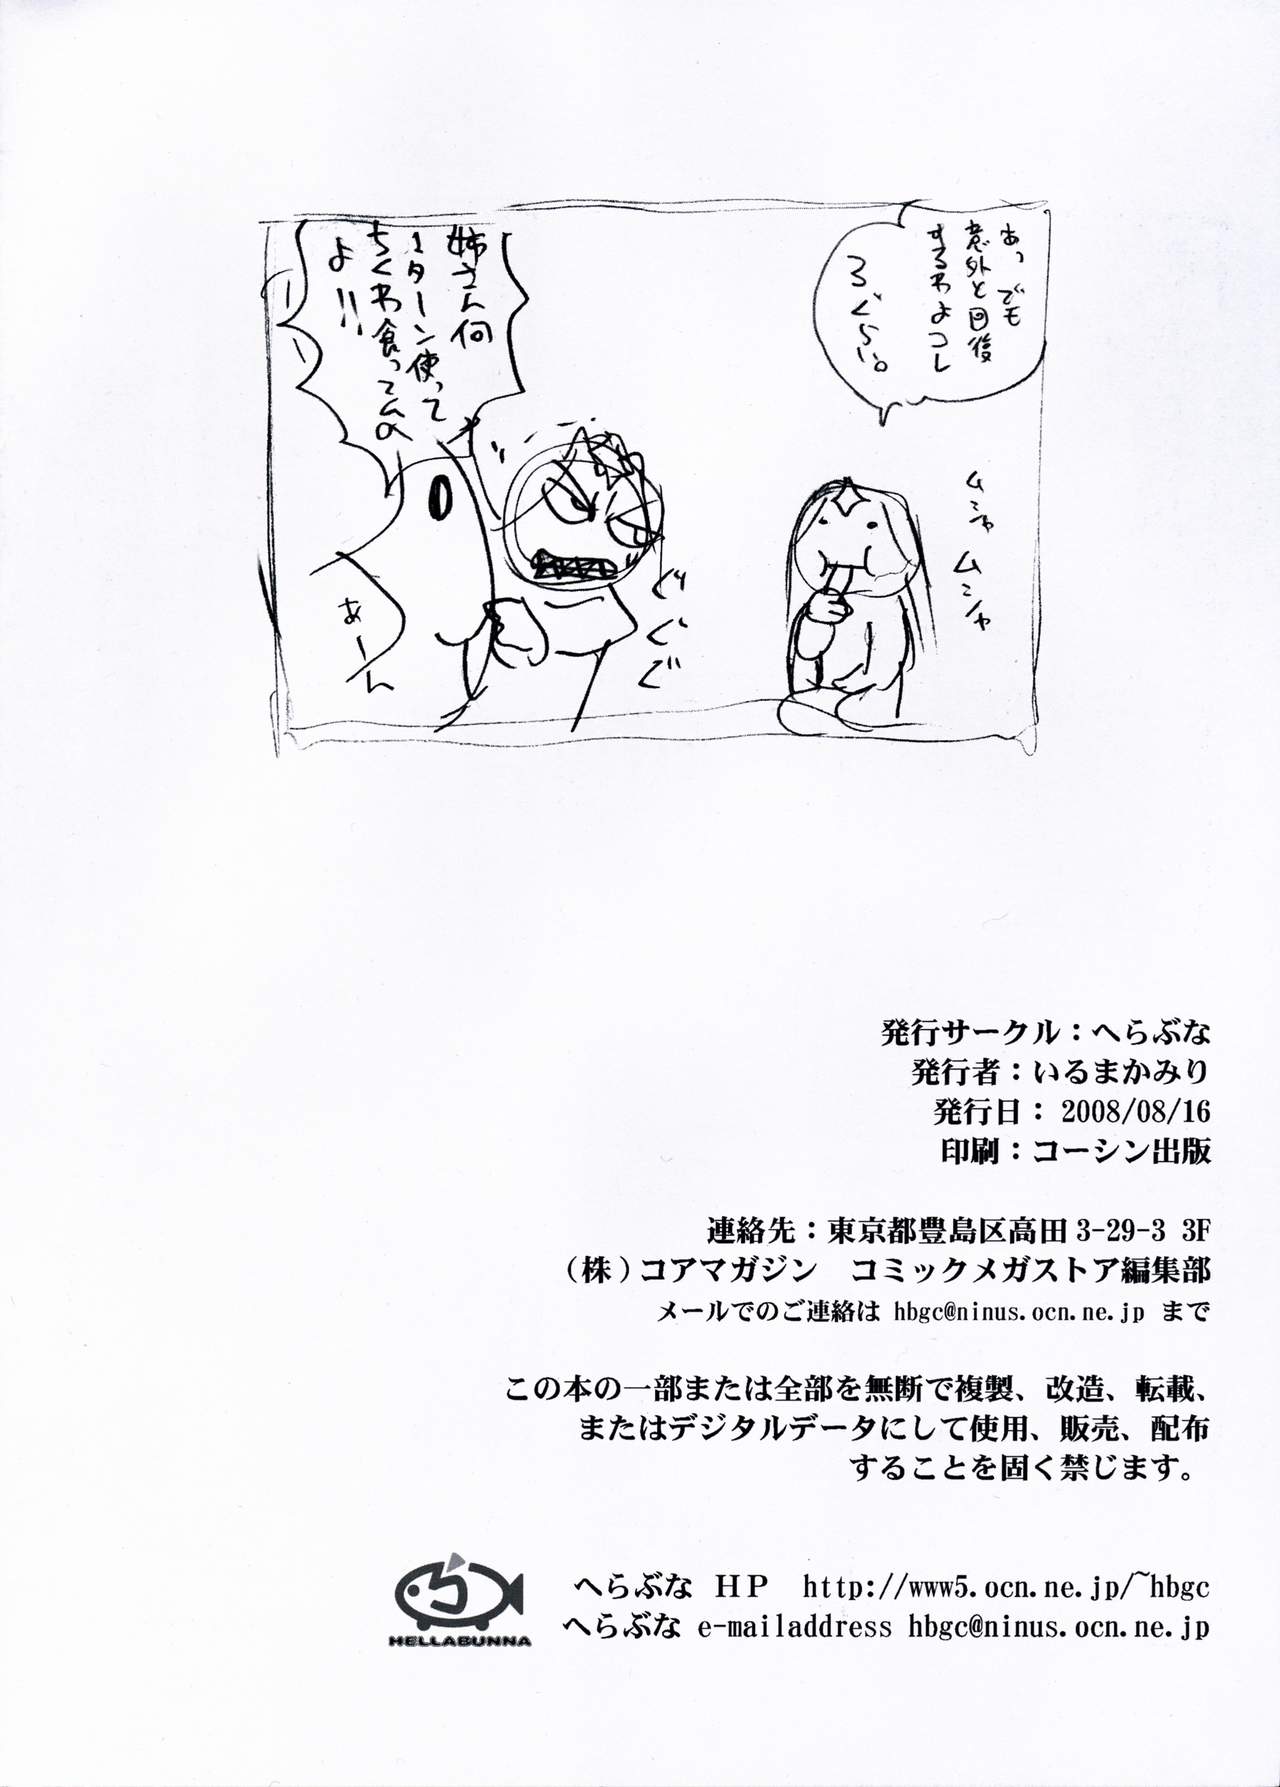 あっでも
意外と回復
するわよコレ
3ぐらい。
ムシャ
ムシャ
姉さん何
1ターン使って
ちくわ食ってんの
よ!!
ぐぐぐ
あーん
発行サークル：へらぶな
発行者：いるまかみり
発行日： 2008/08/16
印刷：コーシン出版
連絡先：東京都豊島区高田 3-29-3 3F
（株）コアマガジン　コミックメガストア編集部
メールでのご連絡は hbgc@ninus.ocn.ne.jp まで
この本の一部または全部を無断で複製、改造、転載、
またはデジタルデータにして使用、販売、配布
することを固く禁じます。
HELLABUNNA
へらぶな ＨＰ　http://www5.ocn.ne.jp/~hbgc
へらぶな e-mailaddress hbgc@ninus.ocn.ne.jp